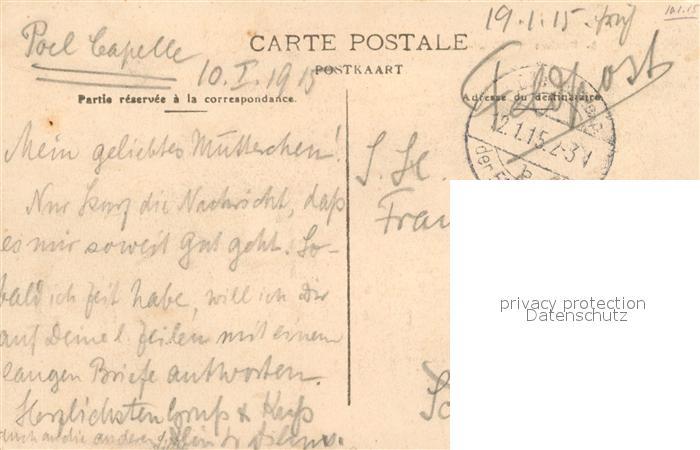 Poel Capelle
10.I.1915
19.1.15.
10.1.15
CARTE POSTALE
POSTKAART
Feldpost
Partie réservée à la correspondance.
Adresse du destinataire
12.1.15.2-3V
Mein geliebtes Mutterchen!
Nur kurz die Nachricht, daß
es mir soweit gut geht. So-
bald ich Zeit habe, will ich Dir
auf Deine l. Zeilen mit einem
langen Briefe antworten.
Herzlichsten Gruß & Kuß
auch an die anderen
Frau
privacy protection
Datenschutz